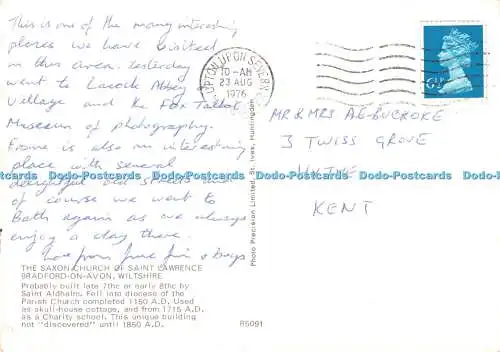 This is one of the many interesting
places we have visited
in this area. Yesterday
went to Lacock Abbey
Village and the Fox Talbot
Museum of photography.
Frome is also an interesting
place with several
delightful old streets and
of course we went to
Bath again as we always
enjoy a day there.
Love from June Jim & boys
THE SAXON CHURCH OF SAINT LAWRENCE
BRADFORD-ON-AVON, WILTSHIRE
Probably built late 7thc or early 8thc by
Saint Aldhelm. Fell into diocese of the
Parish Church completed 1150 A.D. Used
as skull-house cottage, and from 1715 A.D.
as a Charity school. This unique building
not "discovered" until 1860 A.D.
R5091
Photo Precision Limited, St. Ives, Huntingdon
UPTON UPON SEVERN
10-AM
23 AUG
1976
6½P
MR & MRS A.E. BUCKOKE
3 TWISS GROVE
HYTHE
KENT
Dodo-Postcards Dodo-Postcards Dodo-Postcards Dodo-Postcards Dodo-Postcards